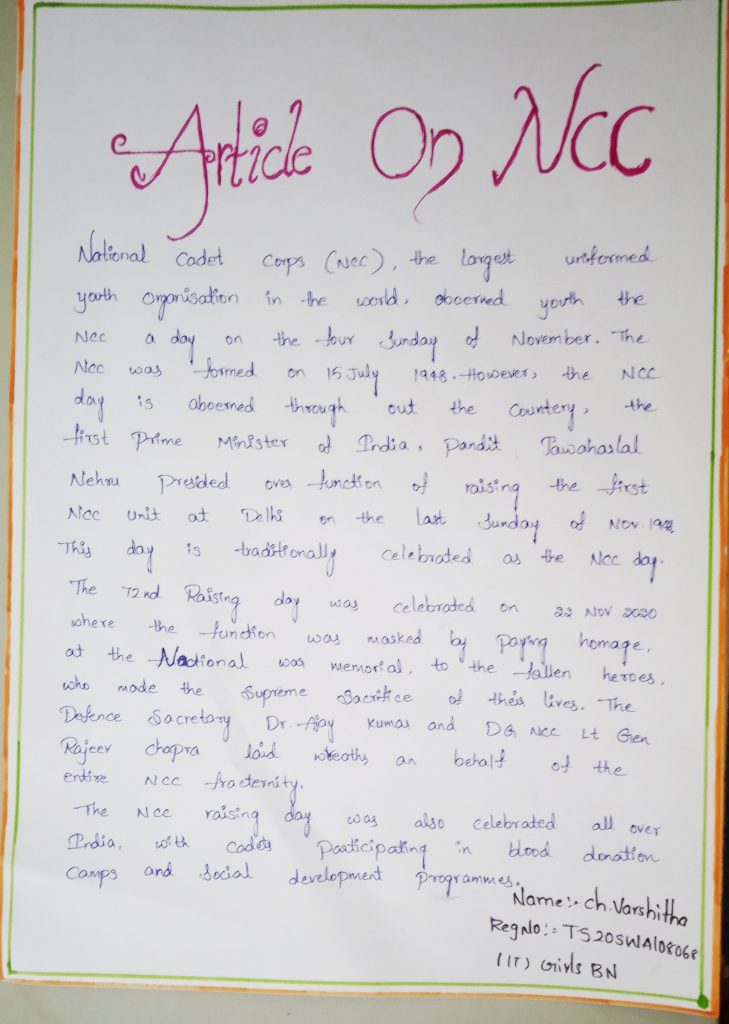 Article On NCC
National Cadet Corps (NCC), the largest uniformed
youth organisation in the world, oboerned youth the
NCC a day on the four Sunday of November. The
NCC was formed on 15 July 1948. However, the NCC
day is aboerned through out the Countery, the
first Prime Minister of India, Pandit Jawaharlal
Nehru Presided over function of raising the first
NCC unit at Delhi on the last Sunday of Nov
This day is traditionally celebrated as the NCC day.
The 72nd Raising day was celebrated on 22 Nov 2020
where the function was marked by paying homage,
at the National war memorial, to the fallen heroes,
who made the Supreme Sacrifice of their lives. The
Defence Sacretary Dr. Ajay Kumar and DG NCC Lt Gen
Rajeev chopra laid wreaths an behalf of the
entire NCC fracternity.
The NCC raising day was also celebrated all over
India, with Cadets Participating in blood donation
Camps and Social development programmes.
Name:- Ch. Varshitha
RegNo:- TS20SWA108068
1(T) Girls BN